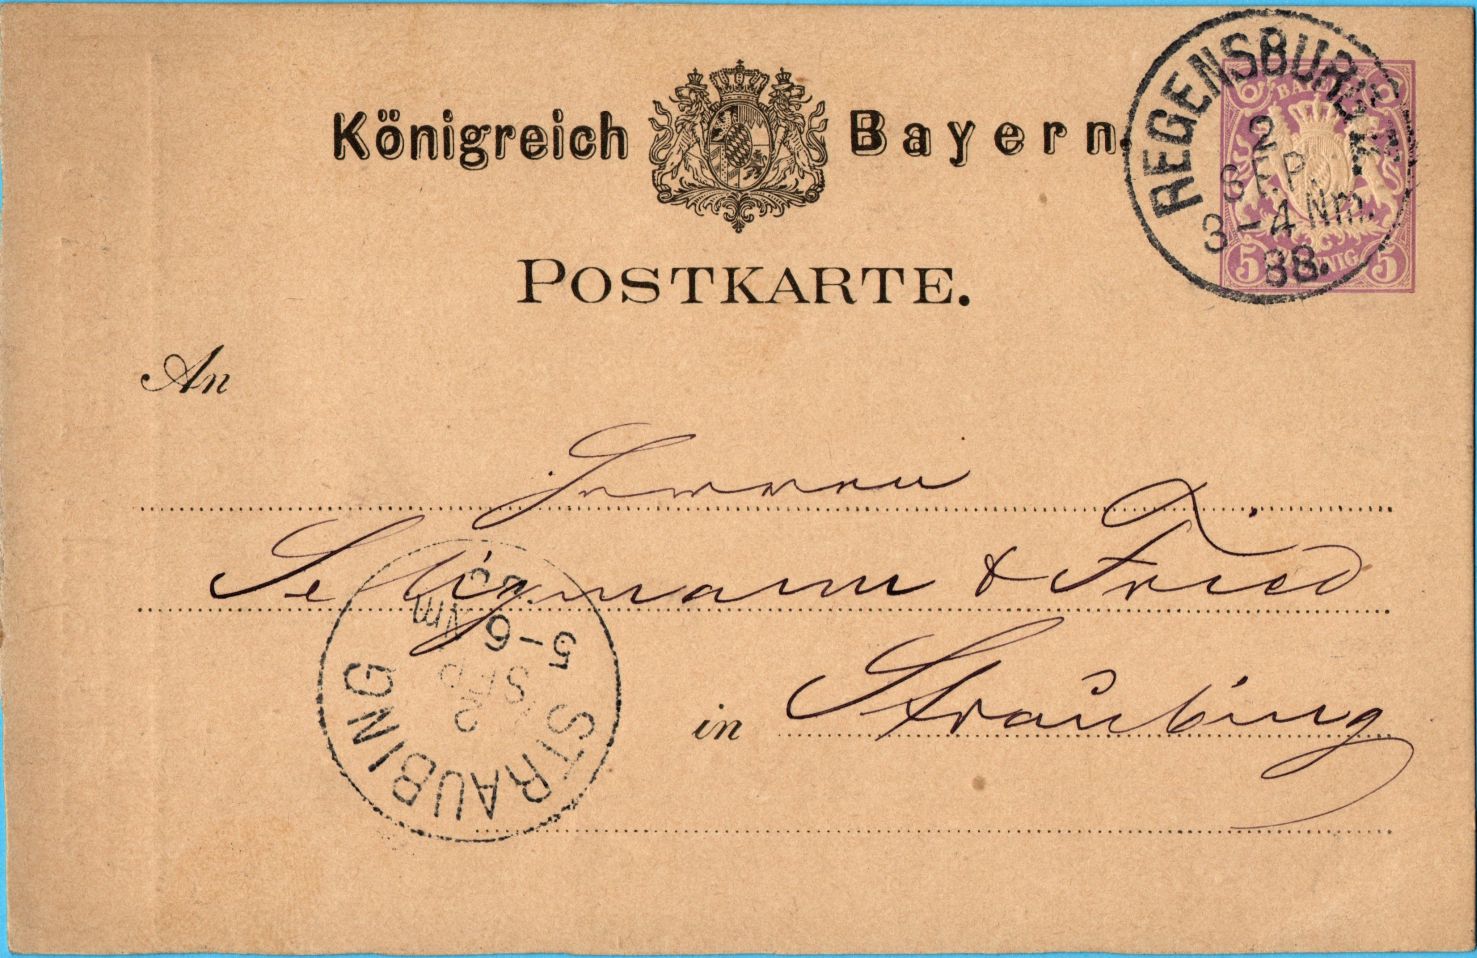 Königreich Bayern.
POSTKARTE.
REGENSBURG
2
SEP.
3-4 Nm.
88.
BAYERN
5 PFENNIG 5
An
Herren
Seligmann & Fried
in Straubing
STRAUBING
5-6
Nm
2
SEP